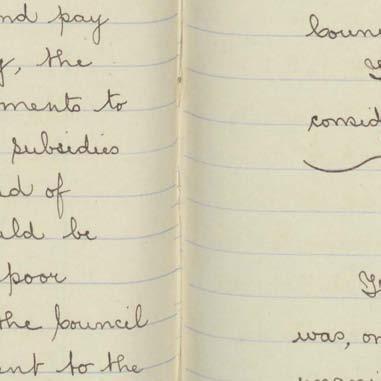 nd pay
, the
ments to
subsidies
d of
uld be
poor
the Council
ent to the
Counc
consid
was, on